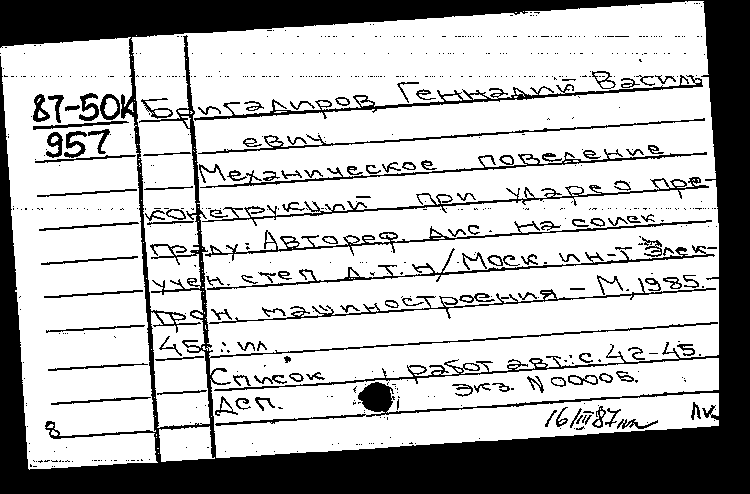 87-50К Бригадиров, Геннадий Василь-
957 евич
Механическое поведение
конструкций при ударе о пре-
граду: Автореф. дис. на соиск.
учен. степ. д.т.н/Моск. ин-т элек-
трон. машиностроения. – М., 1985. –
45с.: ил.
Список работ авт.: с. 42-45.
Дсп. экз. N 00005.
8 16/III 87 ЛК